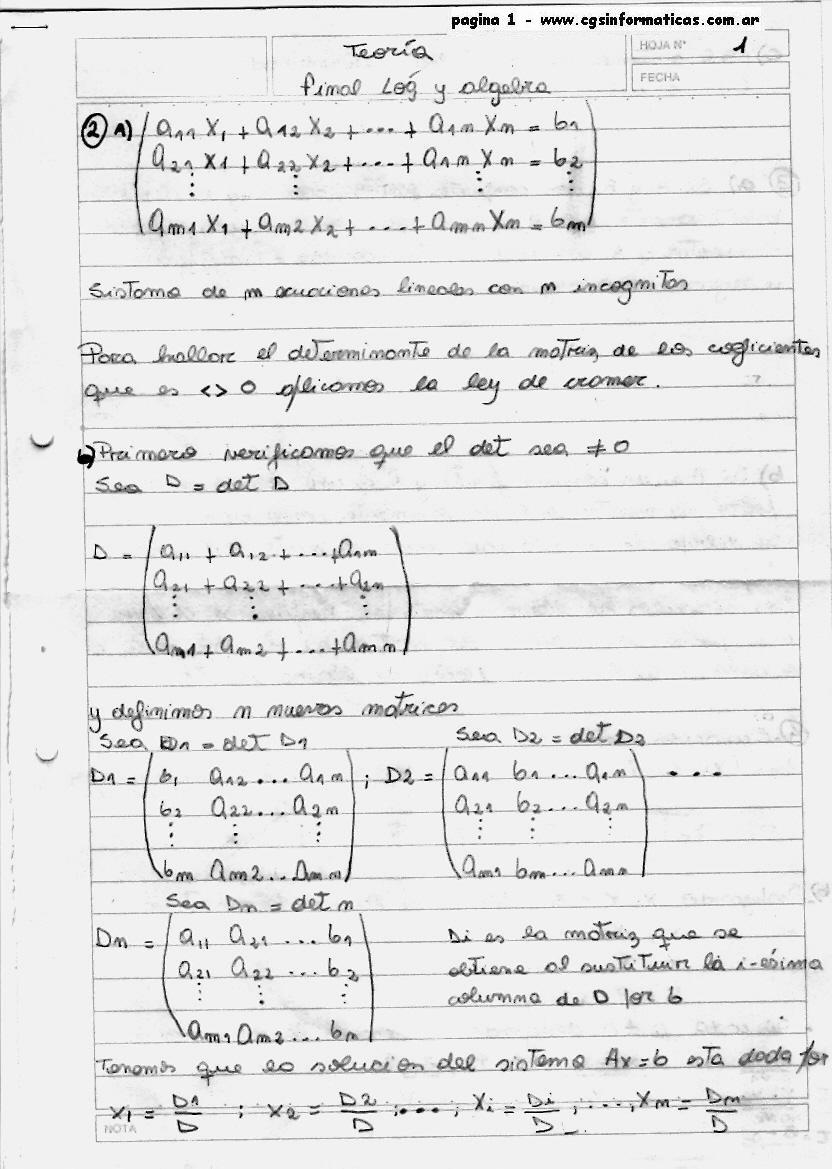 pagina 1 - www.cgsinformaticas.com.ar
Teoría
final Log y algebra
HOJA Nº 1
FECHA
2 A) a11 X1 + a12 X2 + ... + a1n Xn = b1
a21 X1 + a22 X2 + ... + a1n Xn = b2
⋮ ⋮ ⋮ ⋮
am1 X1 + am2 X2 + ... + amn Xn = bm
Sistema de m ecuaciones lineales con n incognitas
Para hallar el determinante de la matriz de los coeficientes
que es <> 0 aplicamos la ley de cramer.
b) Primero verificamos que el det sea ≠ 0
Sea D = det D
D = ( a11 + a12 + ... + a1n
a21 + a22 + ... + a2n
⋮ ⋮ ⋮
am1 + am2 + ... + amn )
y definimos n nuevas matrices
Sea D1 = det D1 Sea D2 = det D2
D1 = ( b1 a12 ... a1n ; D2 = ( a11 b1 ... a1n ...
b2 a22 ... a2n a21 b2 ... a2n
⋮ ⋮ ⋮ ⋮ ⋮ ⋮
bm am2 ... amn ) am1 bm ... amn )
Sea Dn = det n
Dn = ( a11 a21 ... b1 Di es la matriz que se
a21 a22 ... b2 obtiene al sustituir la i-ésima
⋮ ⋮ ⋮ columna de D por b
am1 am2 ... bn )
Tenemos que la solucion del sistema Ax=b esta dada por
X1 = D1/D ; X2 = D2/D ; ... ; Xi = Di/D ; ... , Xn = Dn/D
NOTA